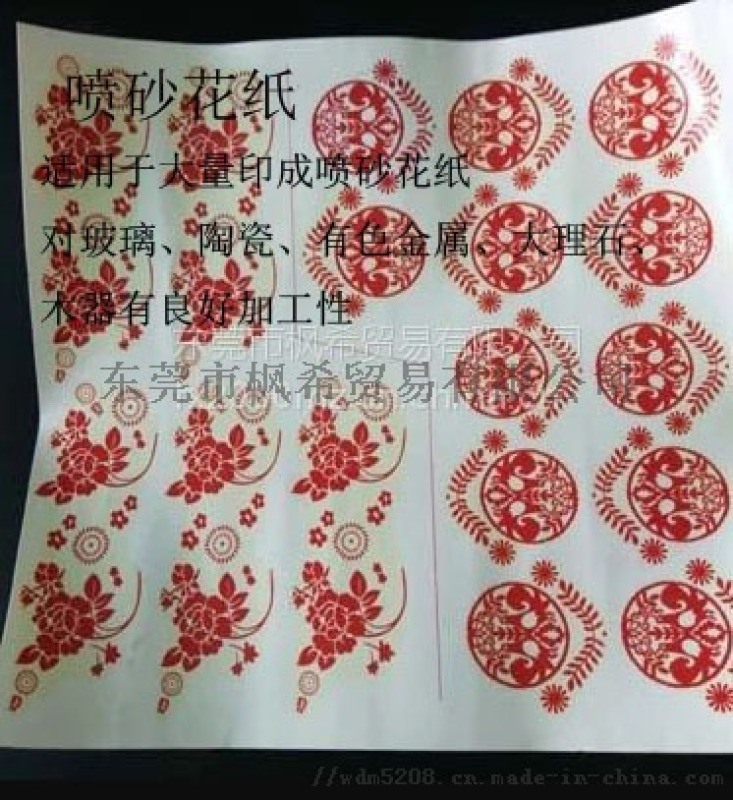 喷砂花纸
适用于大量印成喷砂花纸
对玻璃、陶瓷、有色金属、大理石、
木器有良好加工性
东莞市枫希贸易有限公司
东莞市枫希贸易有限公司
//wdm5208.cn.made-in-china.com/